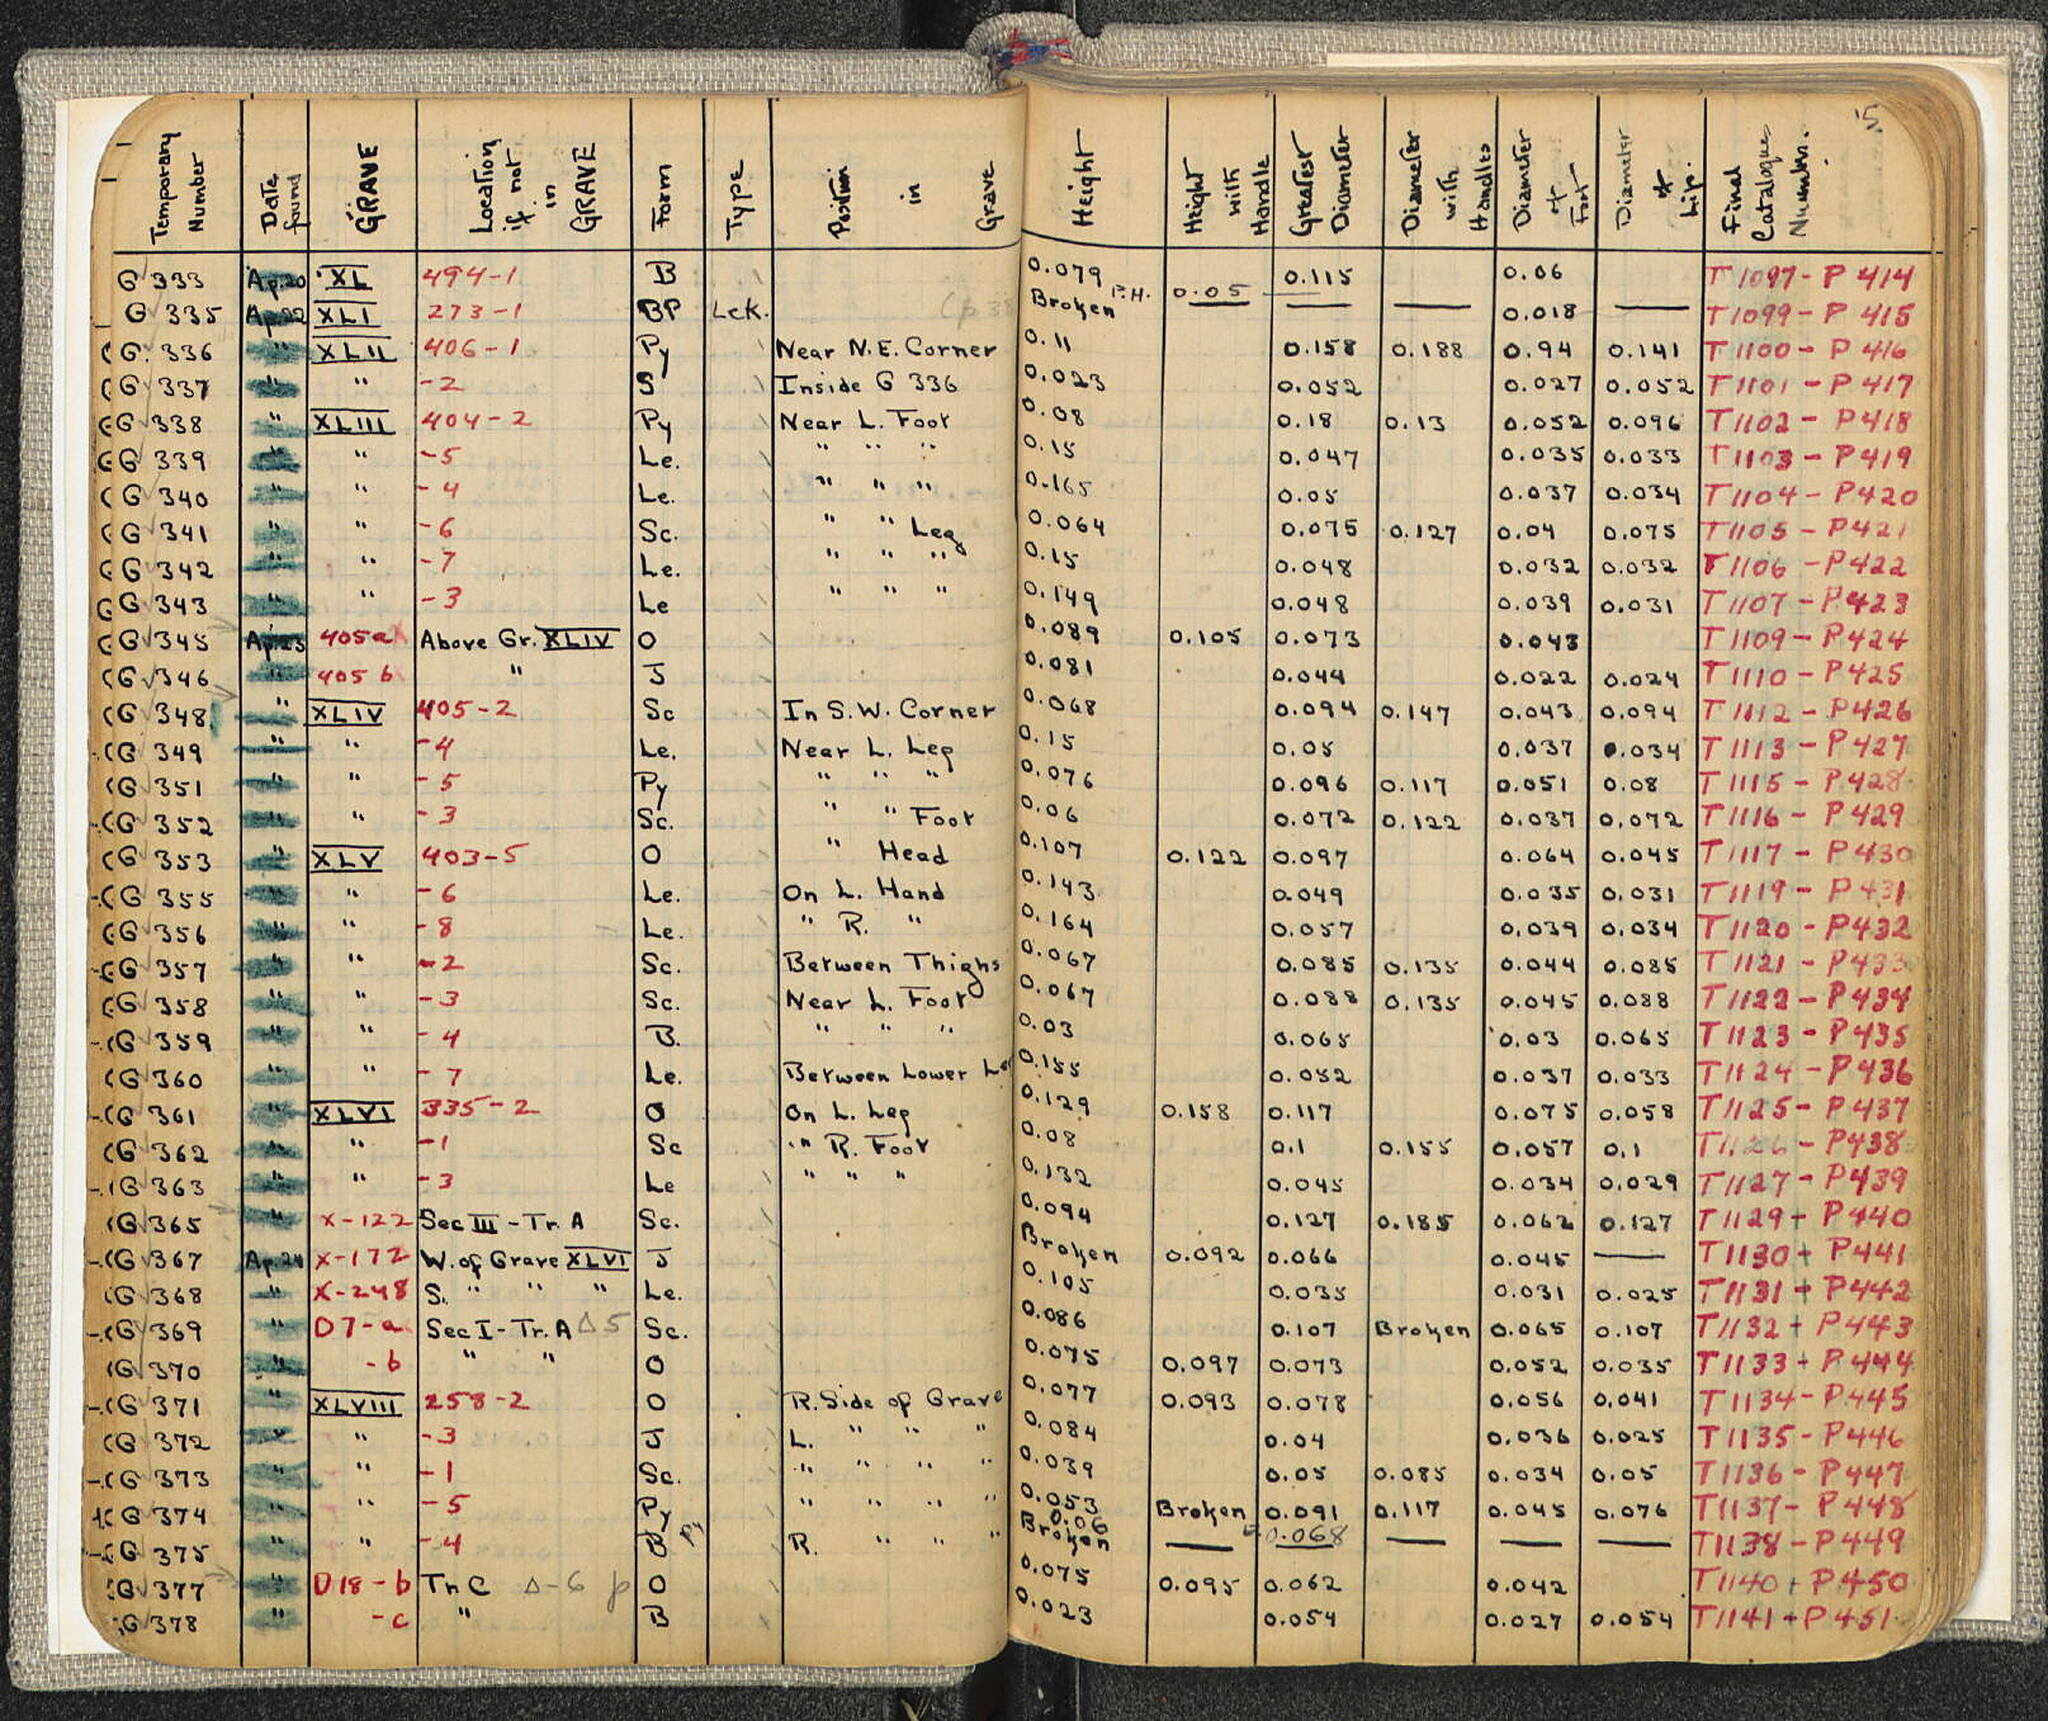 15
Temporary Number | Date found | GRAVE | Location if not in GRAVE | Form | Type | Position in Grave | Height | Height with Handle | Greatest Diameter | Diameter with Handles | Diameter of Foot | Diameter of Lip. | Final Catalogue Number.
G 333 Ap.20 XL 494-1 B 0.079 0.115 0.06 T1097-P414
G 335 Ap.22 XLI 273-1 BP Lek. (p 38 Broken P.H. 0.05 — — — 0.018 — T1099-P415
G. 336 " XLII 406-1 Py Near N.E. Corner 0.11 0.158 0.188 0.94 0.141 T1100-P416
G 337 " " -2 S Inside G 336 0.023 0.052 0.027 0.052 T1101-P417
G 338 " XLIII 404-2 Py Near L. Foot 0.08 0.18 0.13 0.052 0.096 T1102-P418
G 339 " " -5 Le. " " " 0.15 0.047 0.035 0.033 T1103-P419
G 340 " " -4 Le. " " " 0.165 0.05 0.037 0.034 T1104-P420
G 341 " " -6 Sc. " " Leg 0.064 0.075 0.127 0.04 0.075 T1105-P421
G 342 " " -7 Le. " " " 0.15 0.048 0.032 0.032 T1106-P422
G 343 " " -3 Le " " " 0.149 0.048 0.039 0.031 T1107-P423
G 345 Ap.23 405a Above Gr. XLIV O 0.089 0.105 0.073 0.043 T1109-P424
G 346 " 405 b " J 0.081 0.044 0.022 0.024 T1110-P425
G 348 " XLIV 405-2 Sc In S.W. Corner 0.068 0.094 0.147 0.043 0.094 T1112-P426
G 349 " " -4 Le. Near L. Leg 0.15 0.05 0.037 0.034 T1113-P427
G 351 " " -5 Py " " " 0.076 0.096 0.117 0.051 0.08 T1115-P428
G 352 " " -3 Sc. " " Foot 0.06 0.072 0.122 0.037 0.072 T1116-P429
G 353 " XLV 403-5 O " Head 0.107 0.122 0.097 0.064 0.045 T1117-P430
G 355 " " -6 Le. On L. Hand 0.143 0.049 0.035 0.031 T1119-P431
G 356 " " -8 Le. " R. " 0.164 0.057 0.039 0.034 T1120-P432
G 357 " " -2 Sc. Between Thighs 0.067 0.085 0.135 0.044 0.085 T1121-P433
G 358 " " -3 Sc. Near L. Foot 0.067 0.088 0.135 0.045 0.088 T1122-P434
G 359 " " -4 B. " " " 0.03 0.065 0.03 0.065 T1123-P435
G 360 " " -7 Le. Between Lower 0.155 0.052 0.037 0.033 T1124-P436
G 361 " XLVI 335-2 O On L. Leg 0.129 0.158 0.117 0.075 0.058 T1125-P437
G 362 " " -1 Sc " R. Foot 0.08 0.1 0.155 0.057 0.1 T1126-P438
G 363 " " -3 Le " " " 0.132 0.045 0.034 0.029 T1127-P439
G 365 " X-122 Sec III-Tr. A Sc. 0.094 0.127 0.185 0.062 0.127 T1129+P440
G 367 Ap.24 X-172 W. of Grave XLVI J Broken 0.092 0.066 0.045 — T1130+P441
G 368 " X-248 S. " " " Le. 0.105 0.035 0.031 0.025 T1131+P442
G 369 " D7-a Sec I-Tr. A Δ5 Sc. 0.086 0.107 Broken 0.065 0.107 T1132+P443
G 370 " -b " " O 0.075 0.097 0.073 0.052 0.035 T1133+P444
G 371 " XLVIII 258-2 O R. Side of Grave 0.077 0.093 0.078 0.056 0.041 T1134-P445
G 372 " " -3 J L. " " " 0.084 0.04 0.036 0.025 T1135-P446
G 373 " " -1 Sc. " " " " 0.039 0.05 0.085 0.034 0.05 T1136-P447
G 374 " " -5 Py " " " " 0.053 Broken 0.091 0.117 0.045 0.076 T1137-P448
G 375 " " -4 Py R. " " " 0.06 Broken — 0.068 — — — T1138-P449
G 377 " D18-b Tr. C Δ-6 p O 0.075 0.095 0.062 0.042 T1140+P450
G 378 " -c " B 0.023 0.054 0.027 0.054 T1141+P451